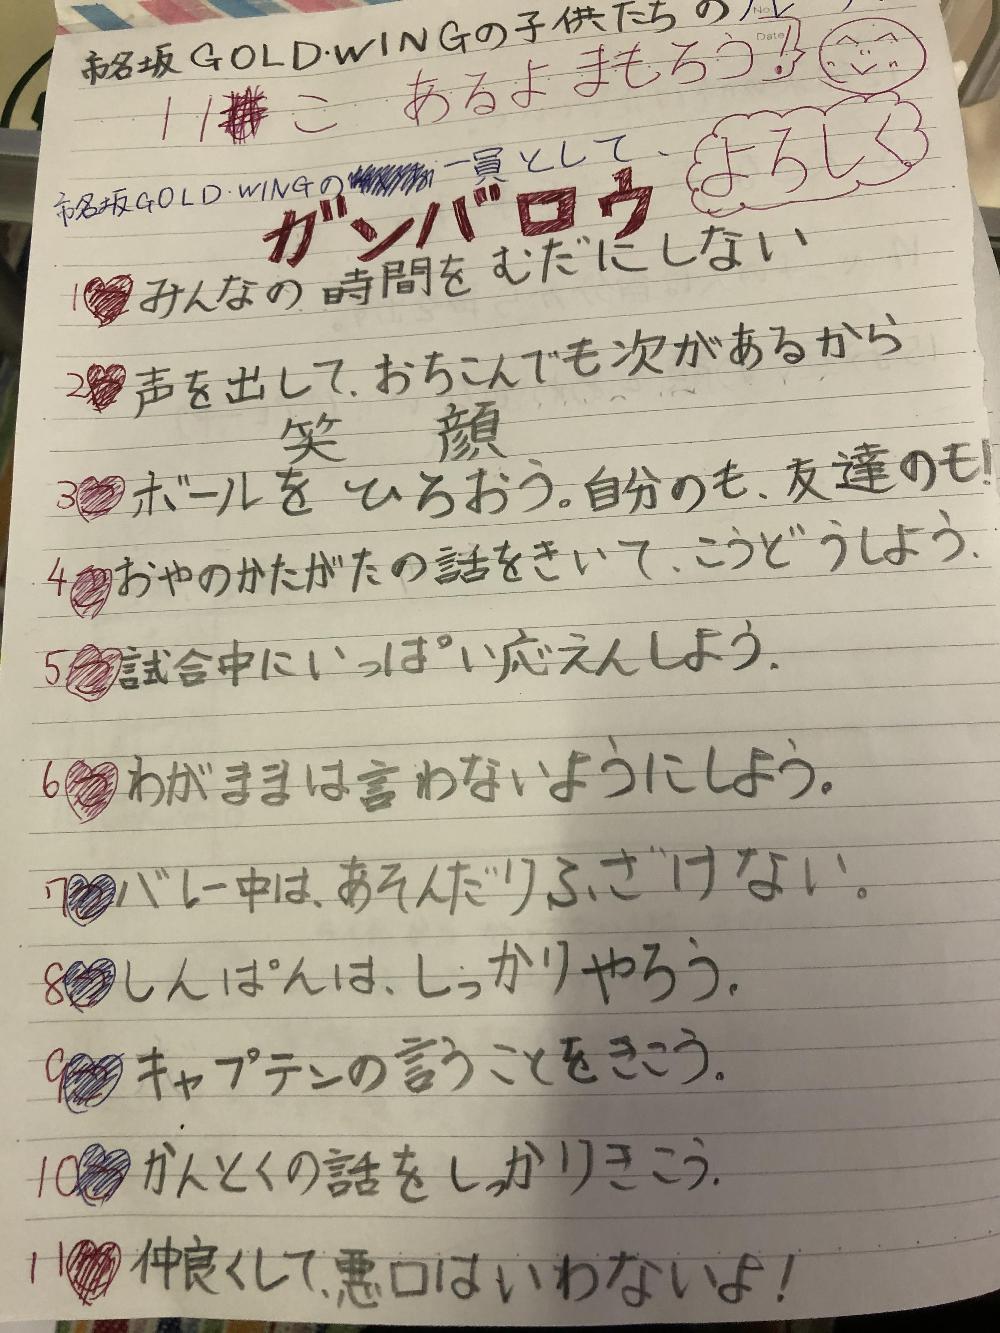 市名坂GOLD・WINGの子供たちの
No.
Date
11こ あるよ まもろう!
よろしく
市名坂GOLD・WINGの 一員として、
ガンバロウ
1 みんなの時間をむだにしない
2 声を出して、おちこんでも次があるから
笑顔
3 ボールをひろおう。自分のも、友達のも!
4 おやのかたがたの話をきいて、こうどうしよう。
5 試合中にいっぱい応えんしよう。
6 わがままは言わないようにしよう。
7 バレー中は、あそんだりふざけない。
8 しんぱんは、しっかりやろう。
9 キャプテンの言うことをきこう。
10 かんとくの話をしっかりきこう。
11 仲良くして、悪口はいわないよ!